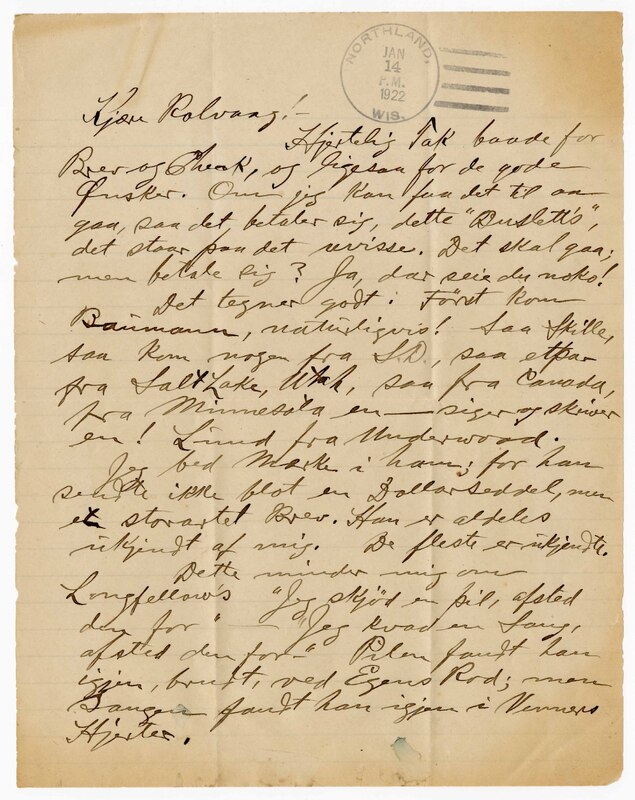 NORTHLAND,
JAN
14
P.M.
1922
WIS.
Kjære Rolvaag!—
Hjertelig Tak baade for
Brev og Check, og ligesaa for de gode
Ønsker. Om jeg kan faa det til aa
gaa, saa det betaler sig, dette "Dusletts",
det staar paa det uvisse. Det skal gaa;
men betale sig? Ja, dar seie du noko!
Det tegner godt i Först kom
Baumann, naturligvis! Saa Skille,
saa kom nogen fra S.D., saa etpar
fra Salt Lake, Utah, saa fra Canada,
fra Minnesota en — siger og skriver
en! Lund fra Underwood.
Jeg bed Mærke i ham; for han
sendte ikke blot en Dollarseddel, men
et storartet Brev. Han er aldeles
ukjendt af mig. De fleste er ukjendte.
Dette minder mig om
Longfellows "Jeg skjöd en pil, afsted
den for" — "Jeg kvad en Sang,
afsted den for—" Pilen fandt han
igjen, brudt, ved Egens Rod; men
Sangen fandt han igjen i Venners
Hjerter.